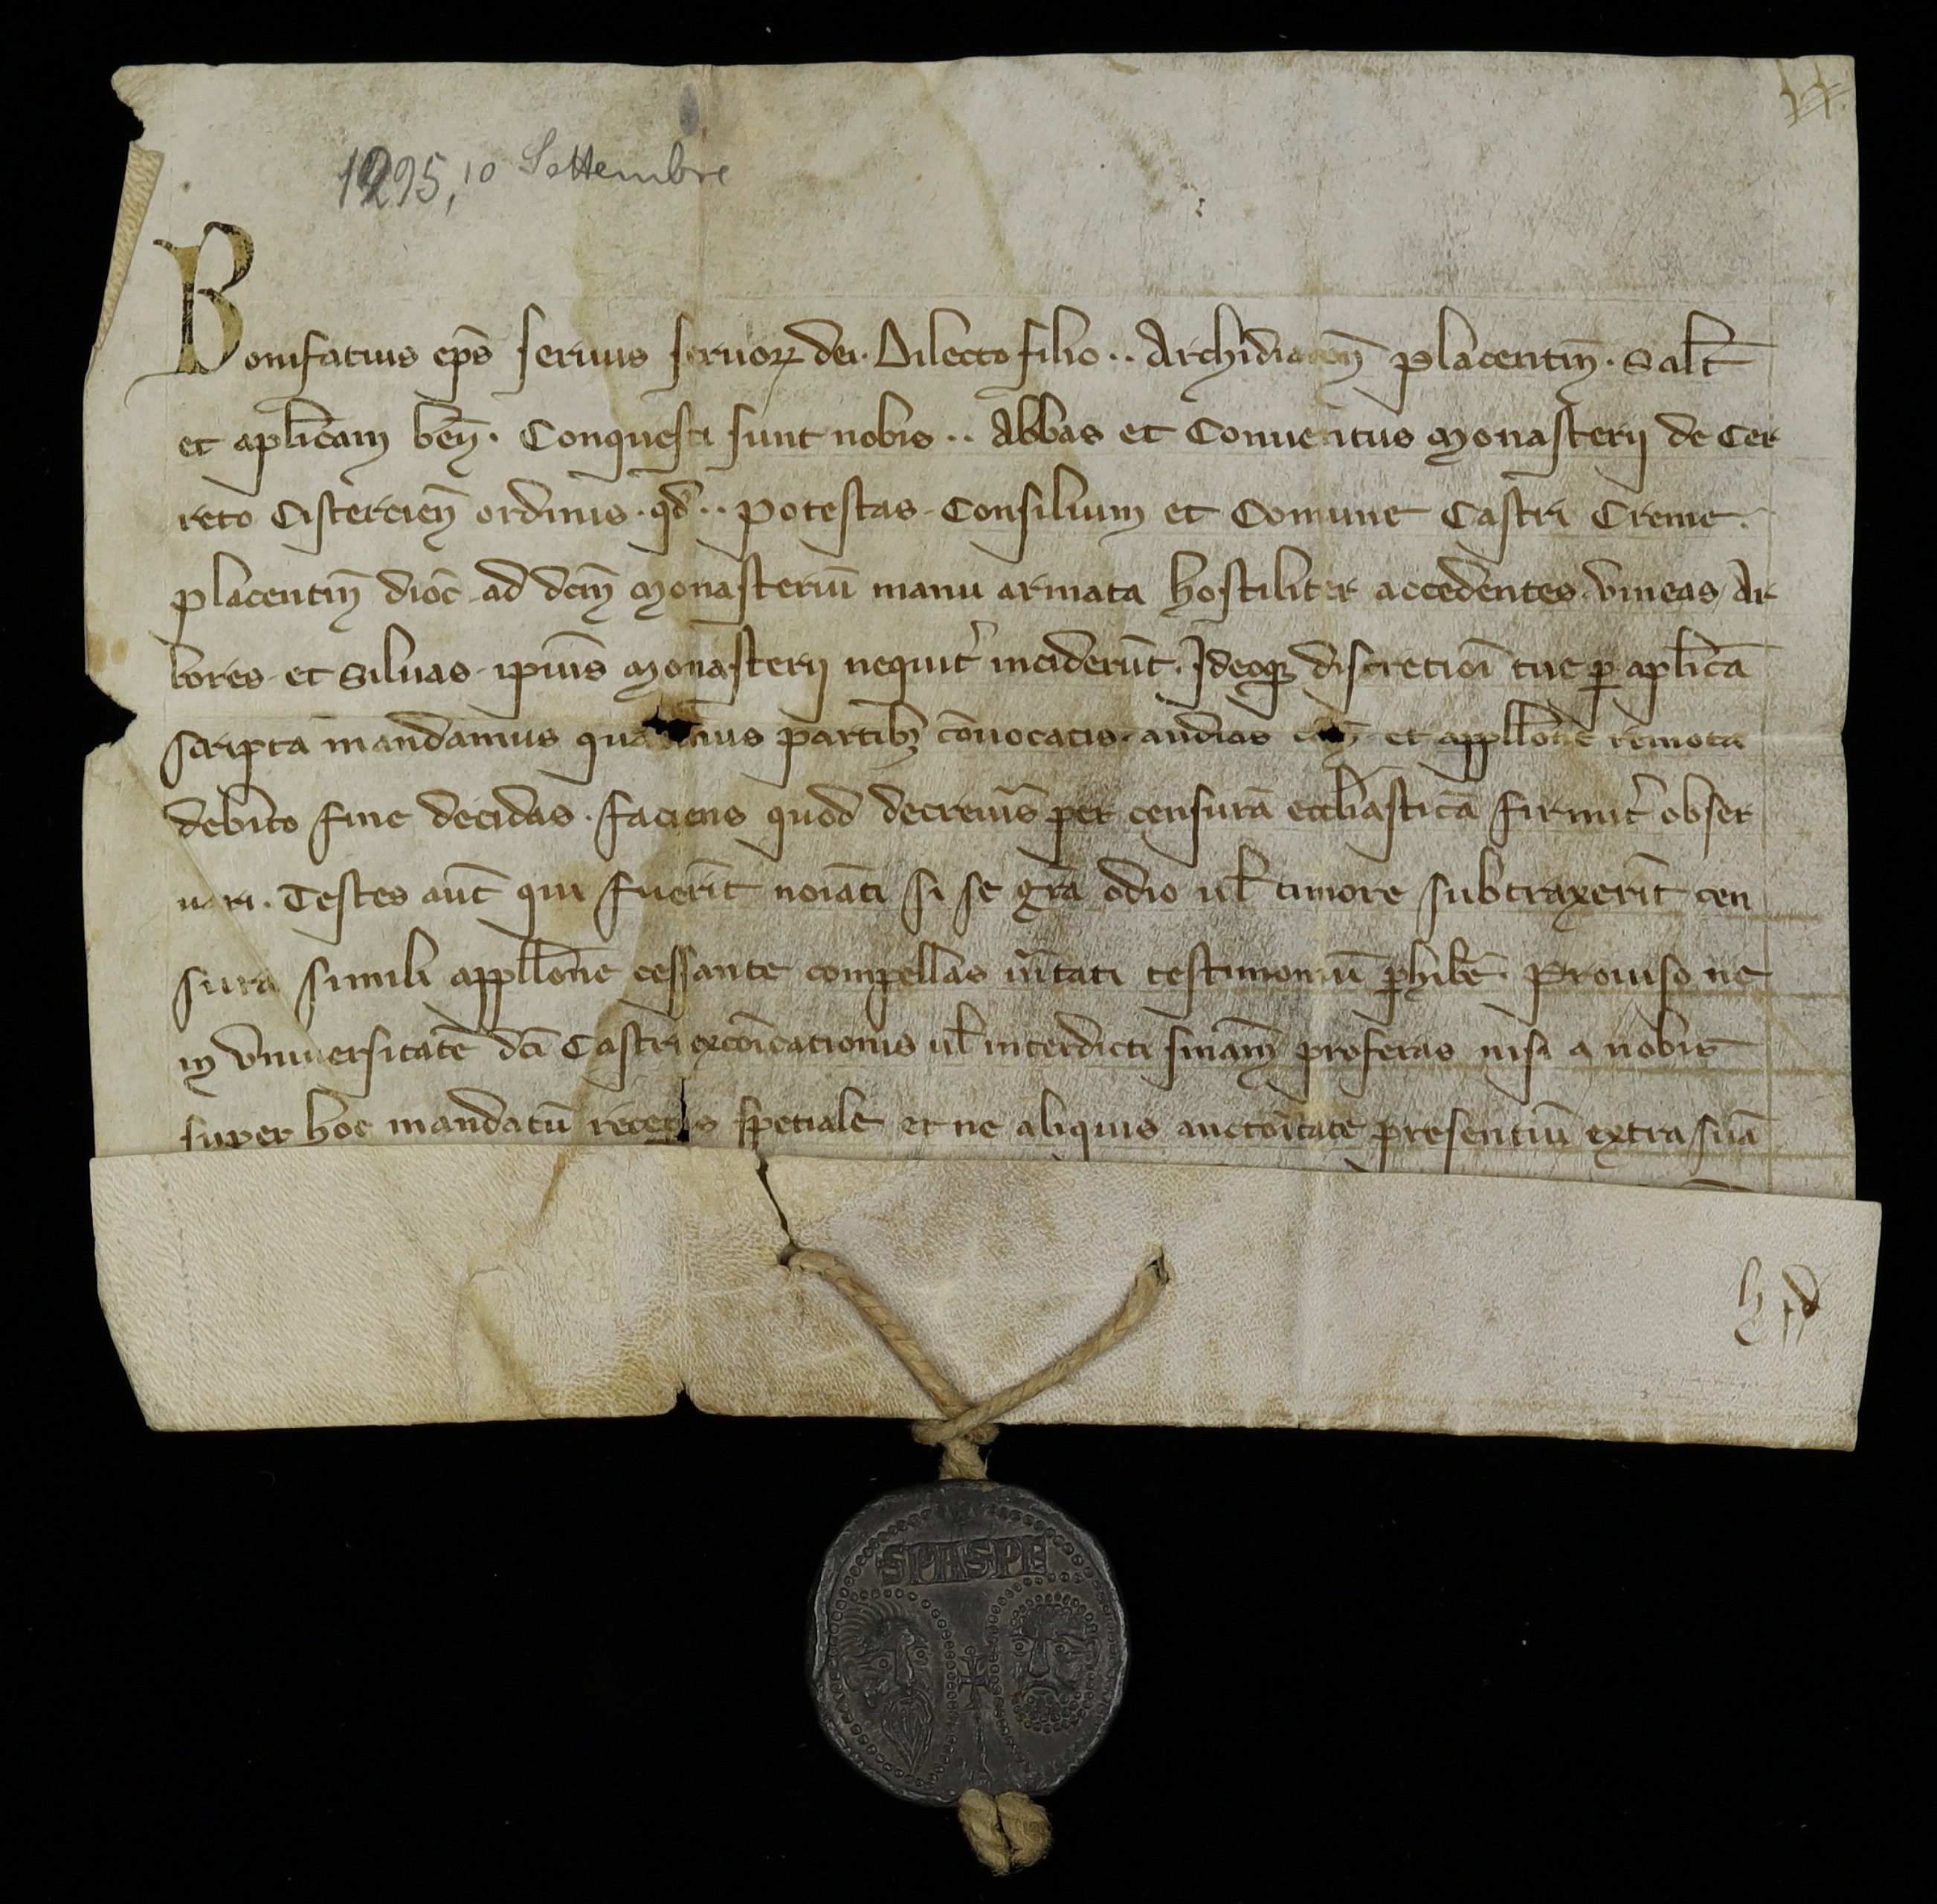 1295, 10 Settembre
Bonifatius ep̄s seruus seruoꝝ dei. Dilecto filio .. Archidiacoñ Placentiñ. Salt̄
et aplicam beñ. Conquesti sunt nobis .. Abbas et Conuentus Monasterij de Cer
reto Cistercieñ ordinis. qd̄ .. Potestas. Consilium et Comune Castri Creme.
Placentiñ dioc̄. ad dcm̄ Monasteriū manu armata hostiliter accedentes. vineas, Ar
bores. et siluas. ipius̄ Monasterij nequit̓ inciderūt. Ideoqꝫ discretioī tue ꝑ aplicā
scripta mandamus quatinus partibꝫ cōuocatis. audias cām̄. et appllōne remota
debito fine decidas. faciens quod decreueīs per censurā eccliasticā firmit̓ obser
uari. Testes aut̄ qui fuerīt noīati si se grā odio ul̄ timore subtraxerīt cen
sura simili appllōne cessante compellas ūitati testimoniū ꝑhibē. Prouiso ne
in vniuersitatē dc̄i Castri excōicationis ul̄ interdicti sniām̄ proferas nisi a nobis
super hoc mandatū receperis spetiale et ne aliquis auctōitate presentiū extra suā
SPASPE